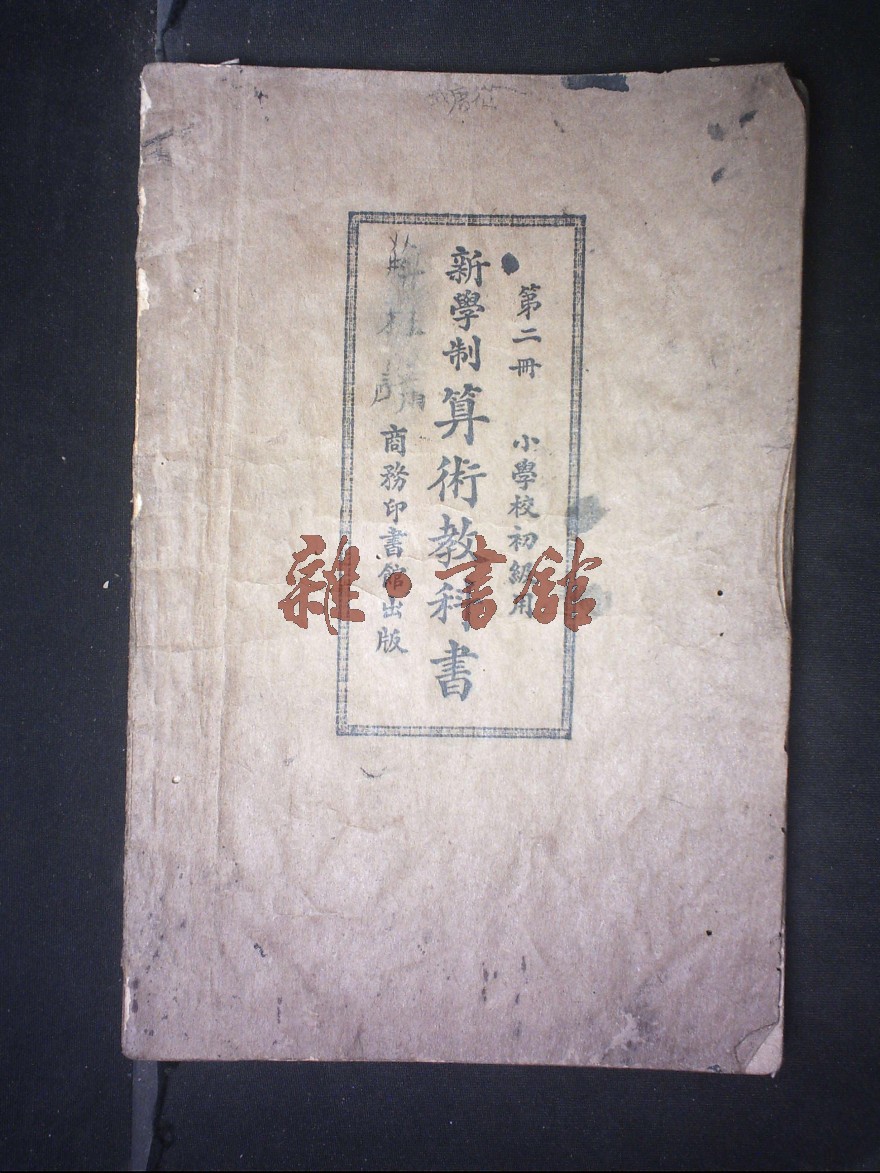 第二冊 小學校初級用
新學制算術教科書
商務印書館出版
雜·書館